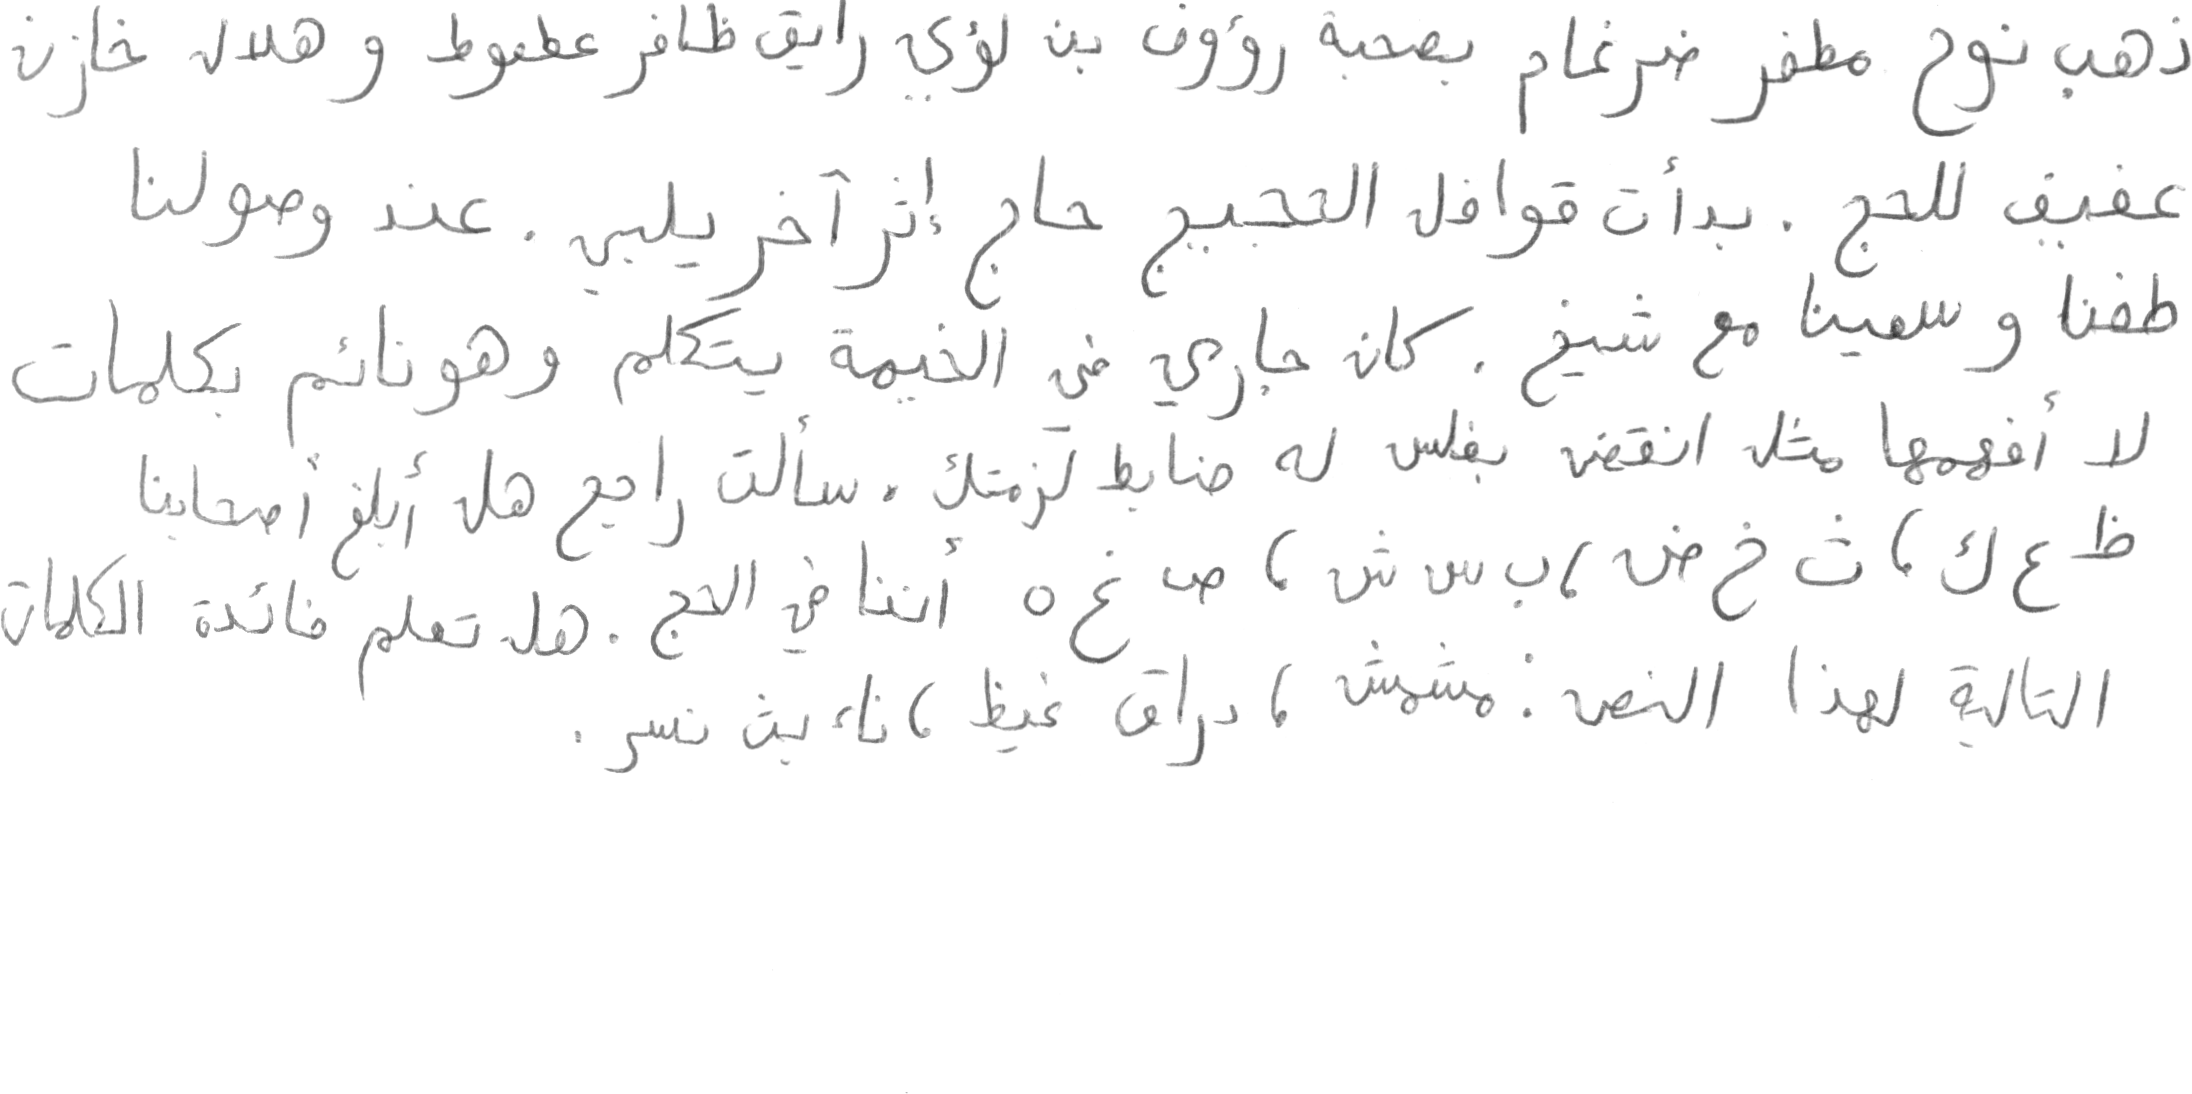 ذهب نوح مظفر ضرغام بصحبة رؤوف بن لؤي رايق ظافر عطعوط و هلال خازن
عفيف للحج . بدأت قوافل الحجيج حاج إثر آخر يلبي . عند وصولنا
طفنا و سعينا مع شيخ . كان جاري في الخيمة يتكلم وهو نائم بكلمات
لا أفهمها مثل انقض بفلس له ضابط لزمتك . سألت راجح هل أبلغ أصحابنا
ظ ع ك ، ث خ ض ، ب س ش ، ص غ ه أننا في الحج . هل تعلم فائدة الكلمات
التالية لهذا النص : مشمش ، دراق غيظ ، ناء بث نسر .